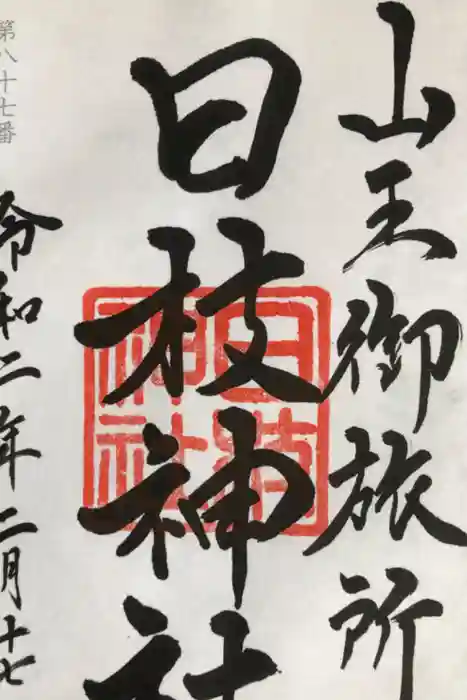 山王御旅所
日枝神社
日枝神社
令和二年二月十七
第八十七番